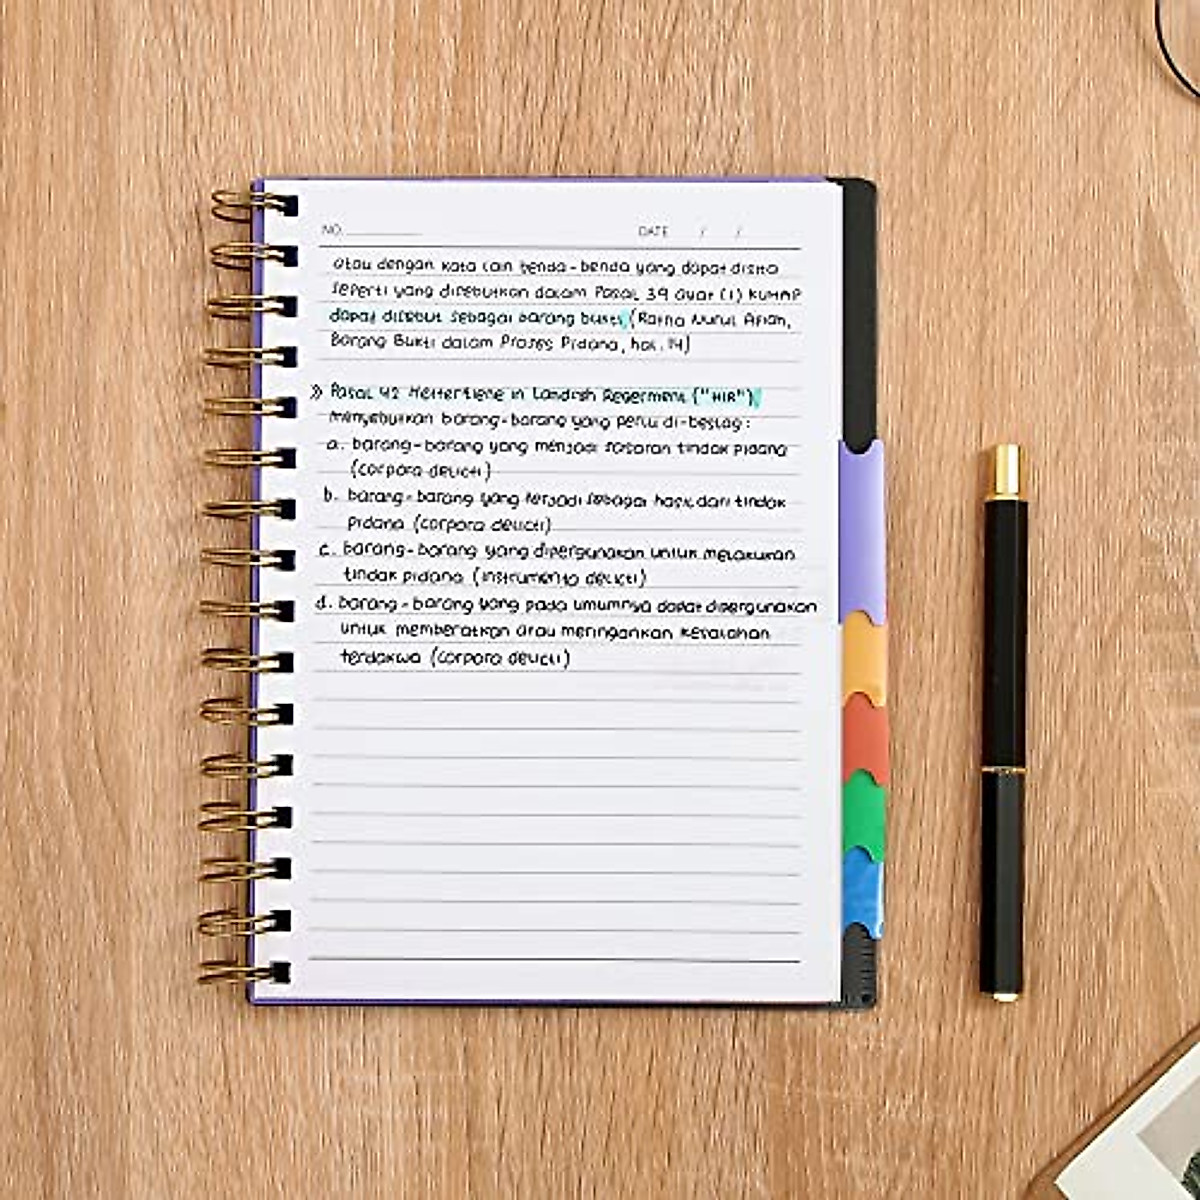 NO.
DATE / /
atau dengan kata lain benda-benda yang dapat disita
seperti yang disebutkan dalam Pasal 39 ayat (1) KUHAP
dapat disebut sebagai barang bukti (Ratna Nurul Afiah,
Barang Bukti dalam Proses Pidana, hal. 14)
» Pasal 42 Het Herziene in Landrsh Regerment ("HIR")
menyebutkan barang-barang yang perlu di-beslag:
a. barang-barang yang menjadi sasaran tindak pidana
(corpora delicti)
b. barang-barang yang terjadi sebagai hasil dari tindak
pidana (corpora delicti)
c. barang-barang yang dipergunakan untuk melakukan
tindak pidana (instrumenta delicti)
d. barang-barang yang pada umumnya dapat dipergunakan
untuk memberatkan atau meringankan kesalahan
terdakwa (corpora delicti)